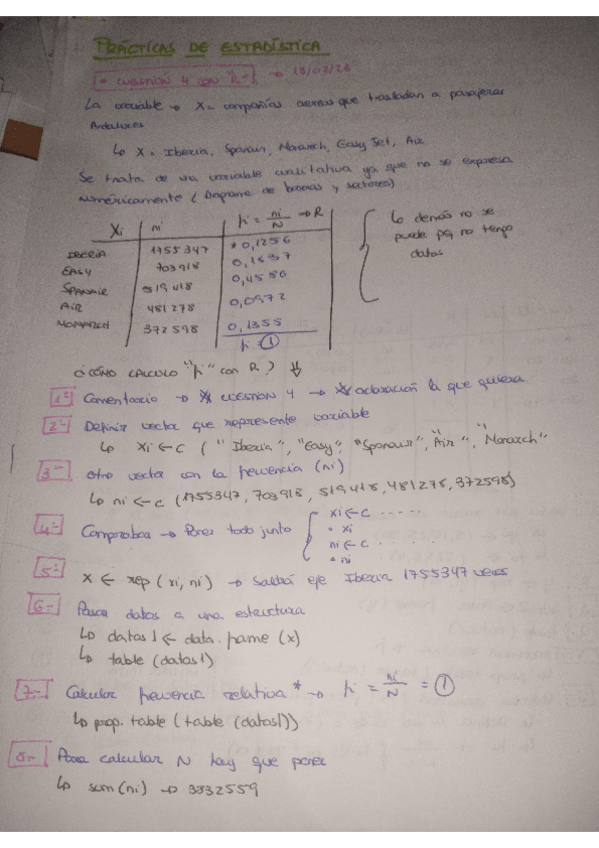 PRÁCTICAS DE ESTADÍSTICA
* CUESTIÓN 4 CON "R" → 19/02/26
La variable → X = compañías aereas que trasladan a pasajeros
Andaluces
↳ X = Iberia, Spanair, Monarch, Easy Jet, Air
Se trata de una variable cualitativa ya que no se expresa
numéricamente (Diagrama de barras y sectores)
Xi | ni | fi = ni/N → R
IBERIA | 1755347 | * 0,1256
EASY | 703918 | 0,1637
SPANAIR | 519418 | 0,4586
AIR | 481278 | 0,0972
MONARCH | 372598 | 0,1355
fi = 1
Lo demás no se
puede pq no tengo
datos
¿CÓMO CALCULO "fi" con R? ⇓
1º- Comentario → * CUESTIÓN 4 → * aclaración la que quiera
2º- Definir vector que represente variable
↳ Xi <- c ("Iberia", "Easy", "Spanair", "Air", "Monarch"
3º- otro vector con la frecuencia (ni)
↳ ni <- c (1755347, 703918, 519418, 481278, 372598)
4º- Comprobar → Poner todo junto
xi <- c .....
• xi
ni <- c .
• ni
5º- X <- rep (xi, ni) → Saldrá eje Iberia 1755347 veces
6- Pasar datos a una estructura
↳ datos1 <- data.frame (x)
↳ table (datos1)
7- Calcular frecuencia relativa * → fi = ni/N = 1
↳ prop.table (table (datos1))
8- Para calcular N hay que poner
↳ sum (ni) → 3832559